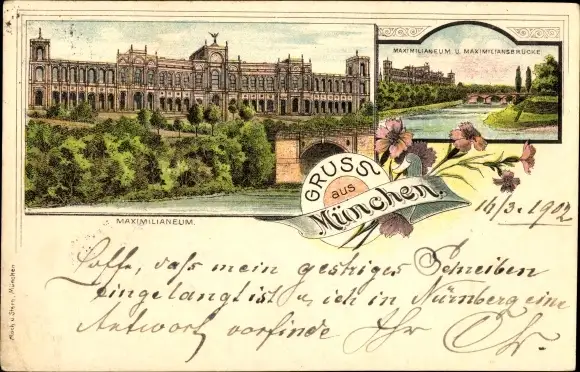 MAXIMILIANEUM U. MAXIMILIANSBRÜCKE
MAXIMILIANEUM.
GRUSS
aus
München.
16/3. 1902
Hoffe, dass mein gestriges Schreiben
eingelangt ist u. ich in Nürnberg eine
Antwort vorfinde Ihr